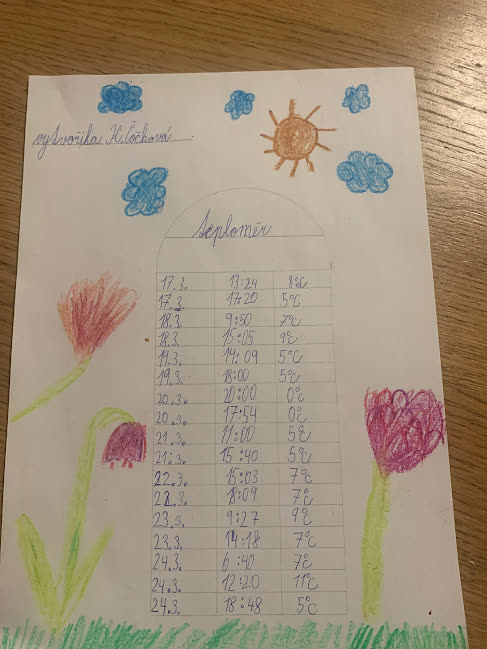 vytvořila K. Čočková
Teploměr
17.3. 13:24 8°C
17.3. 17:20 5°C
18.3. 9:50 7°C
18.3. 15:05 9°C
19.3. 14:09 5°C
19.3. 18:00 5°C
20.3. 20:00 0°C
20.3. 17:54 0°C
21.3. 11:00 5°C
21.3. 15:40 5°C
22.3. 15:03 7°C
22.3. 18:09 7°C
23.3. 9:27 9°C
23.3. 14:18 7°C
24.3. 6:40 7°C
24.3. 12:20 11°C
24.3. 18:48 5°C